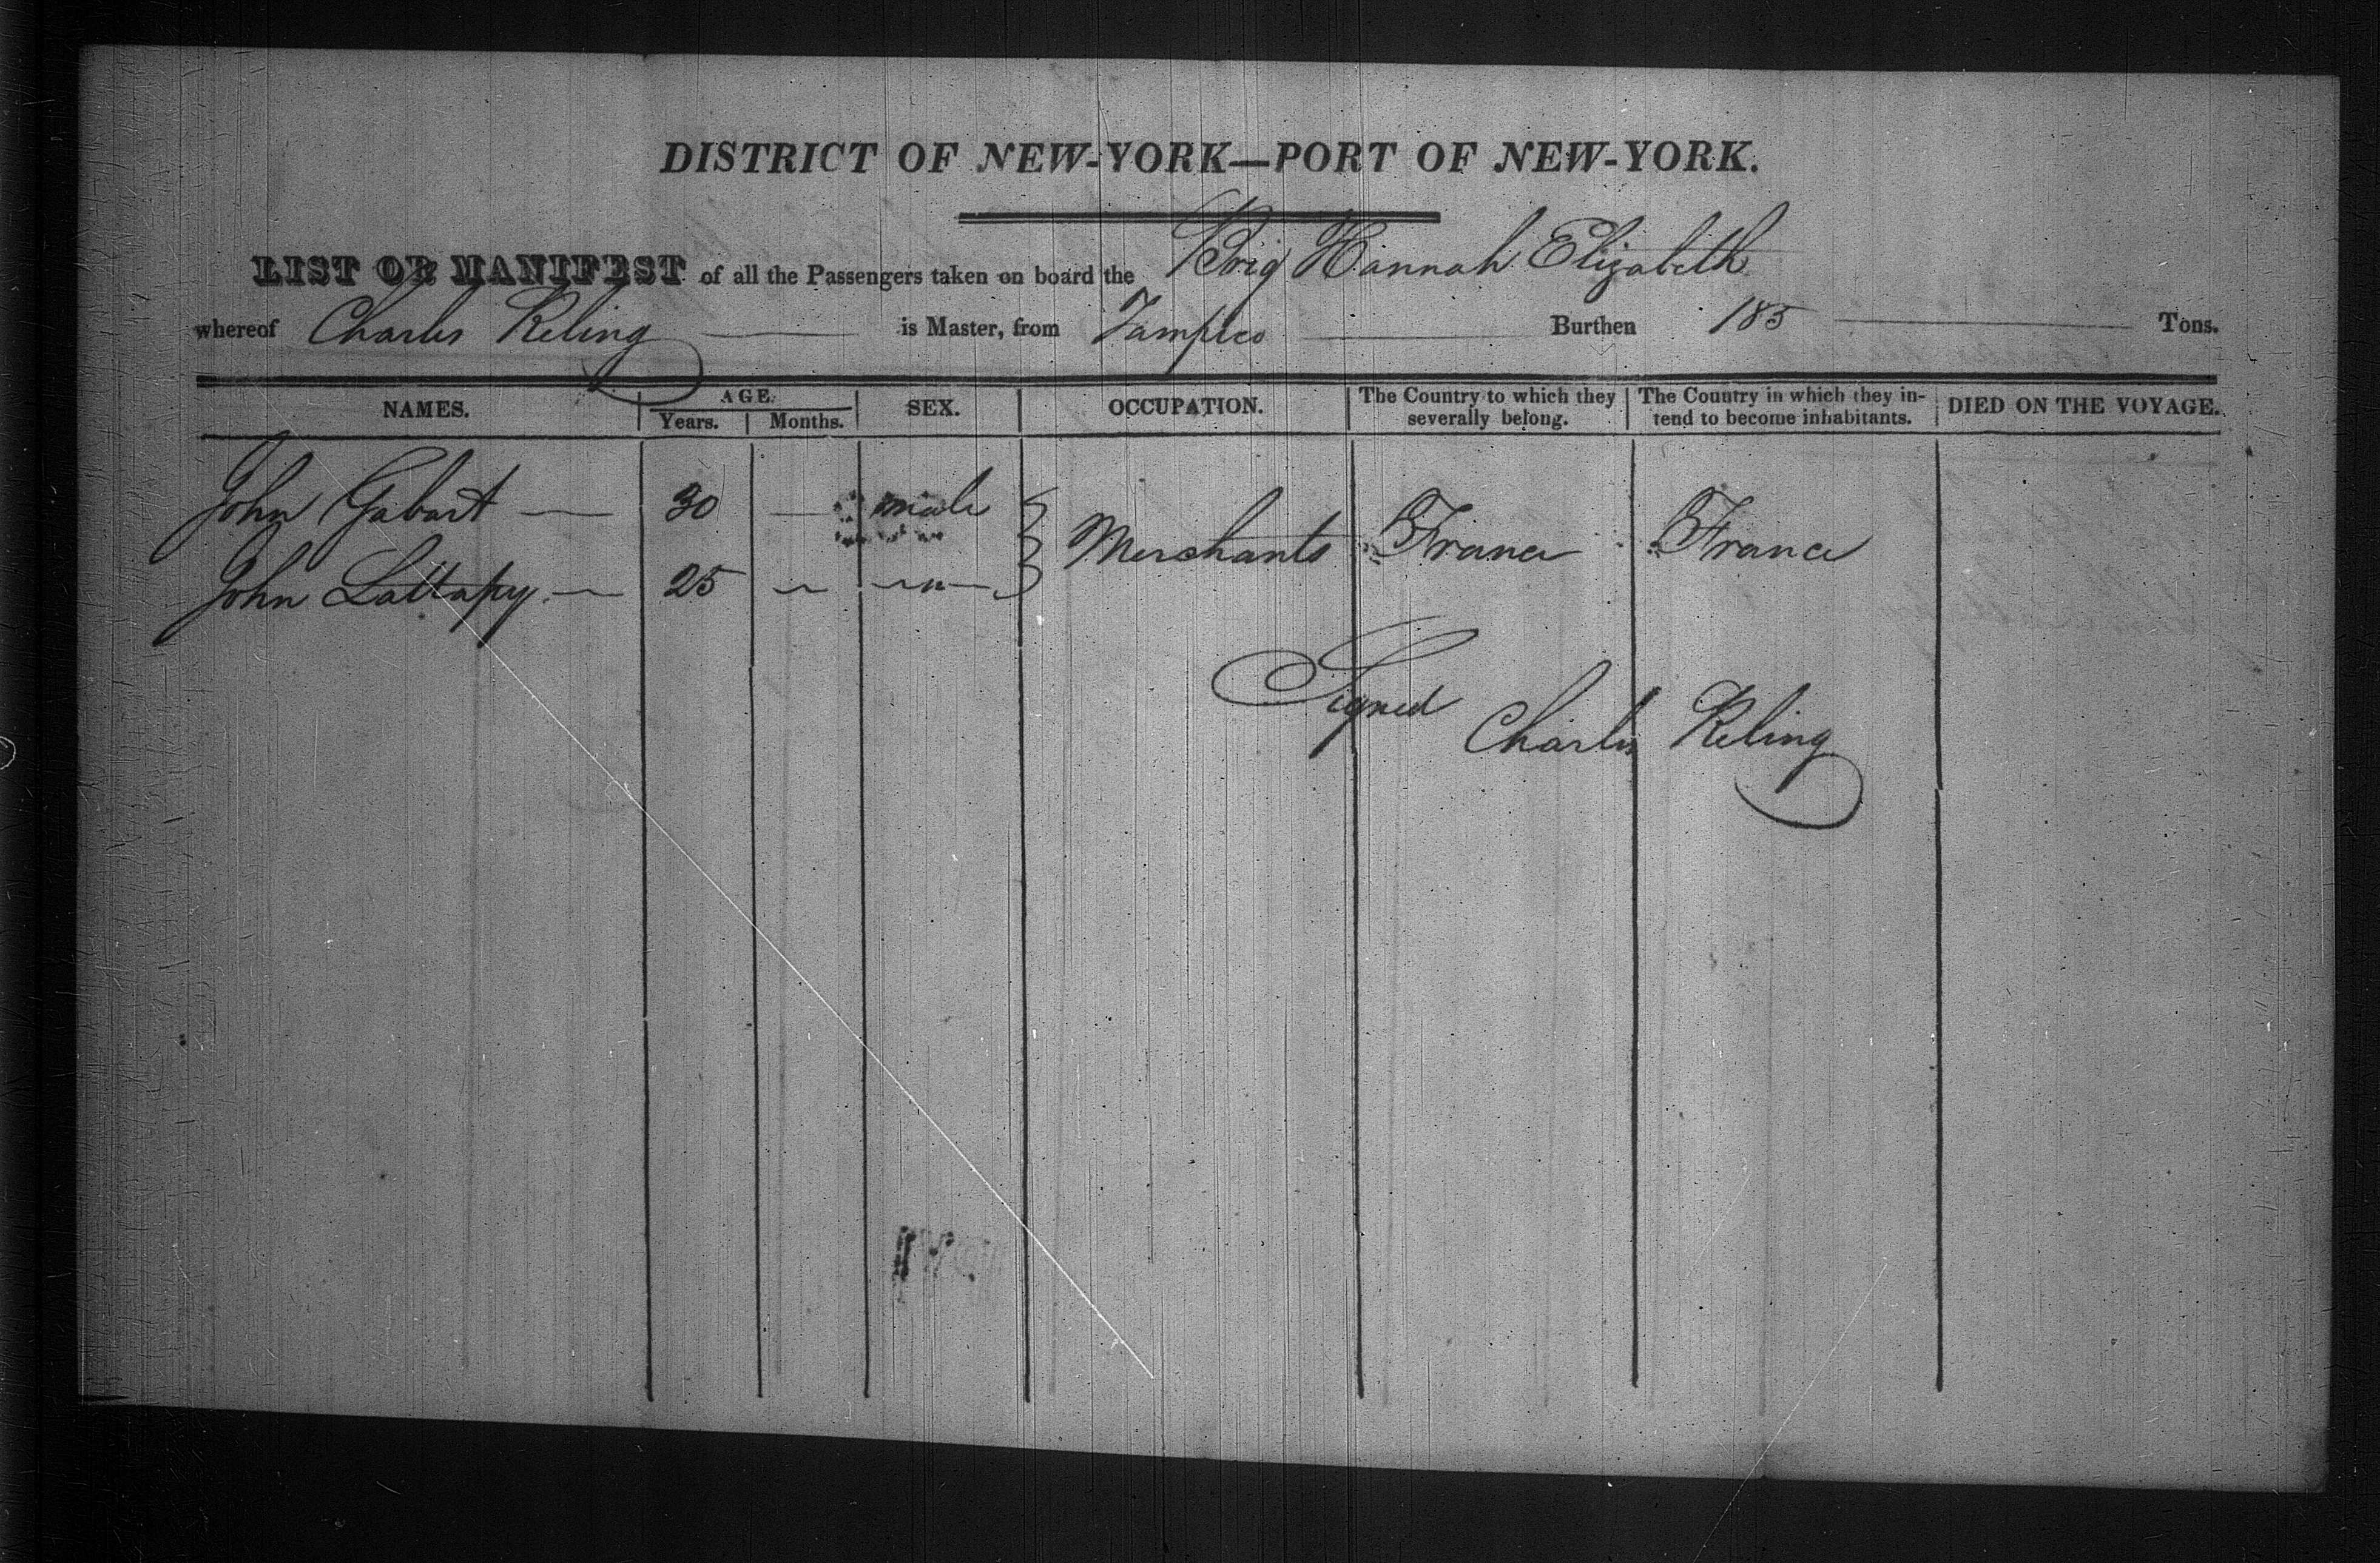 DISTRICT OF NEW-YORK—PORT OF NEW-YORK.
LIST OR MANIFEST of all the Passengers taken on board the Brig Hannah Elizabeth
whereof Charles Reling is Master, from Tampico Burthen 185 Tons.
NAMES. AGE. Years. Months. SEX. OCCUPATION. The Country to which they severally belong. The Country in which they intend to become inhabitants. DIED ON THE VOYAGE.
John Gabart — 30 — male Merchants France France
John Lattapy — 25 — — " —
Signed
Charles Reling